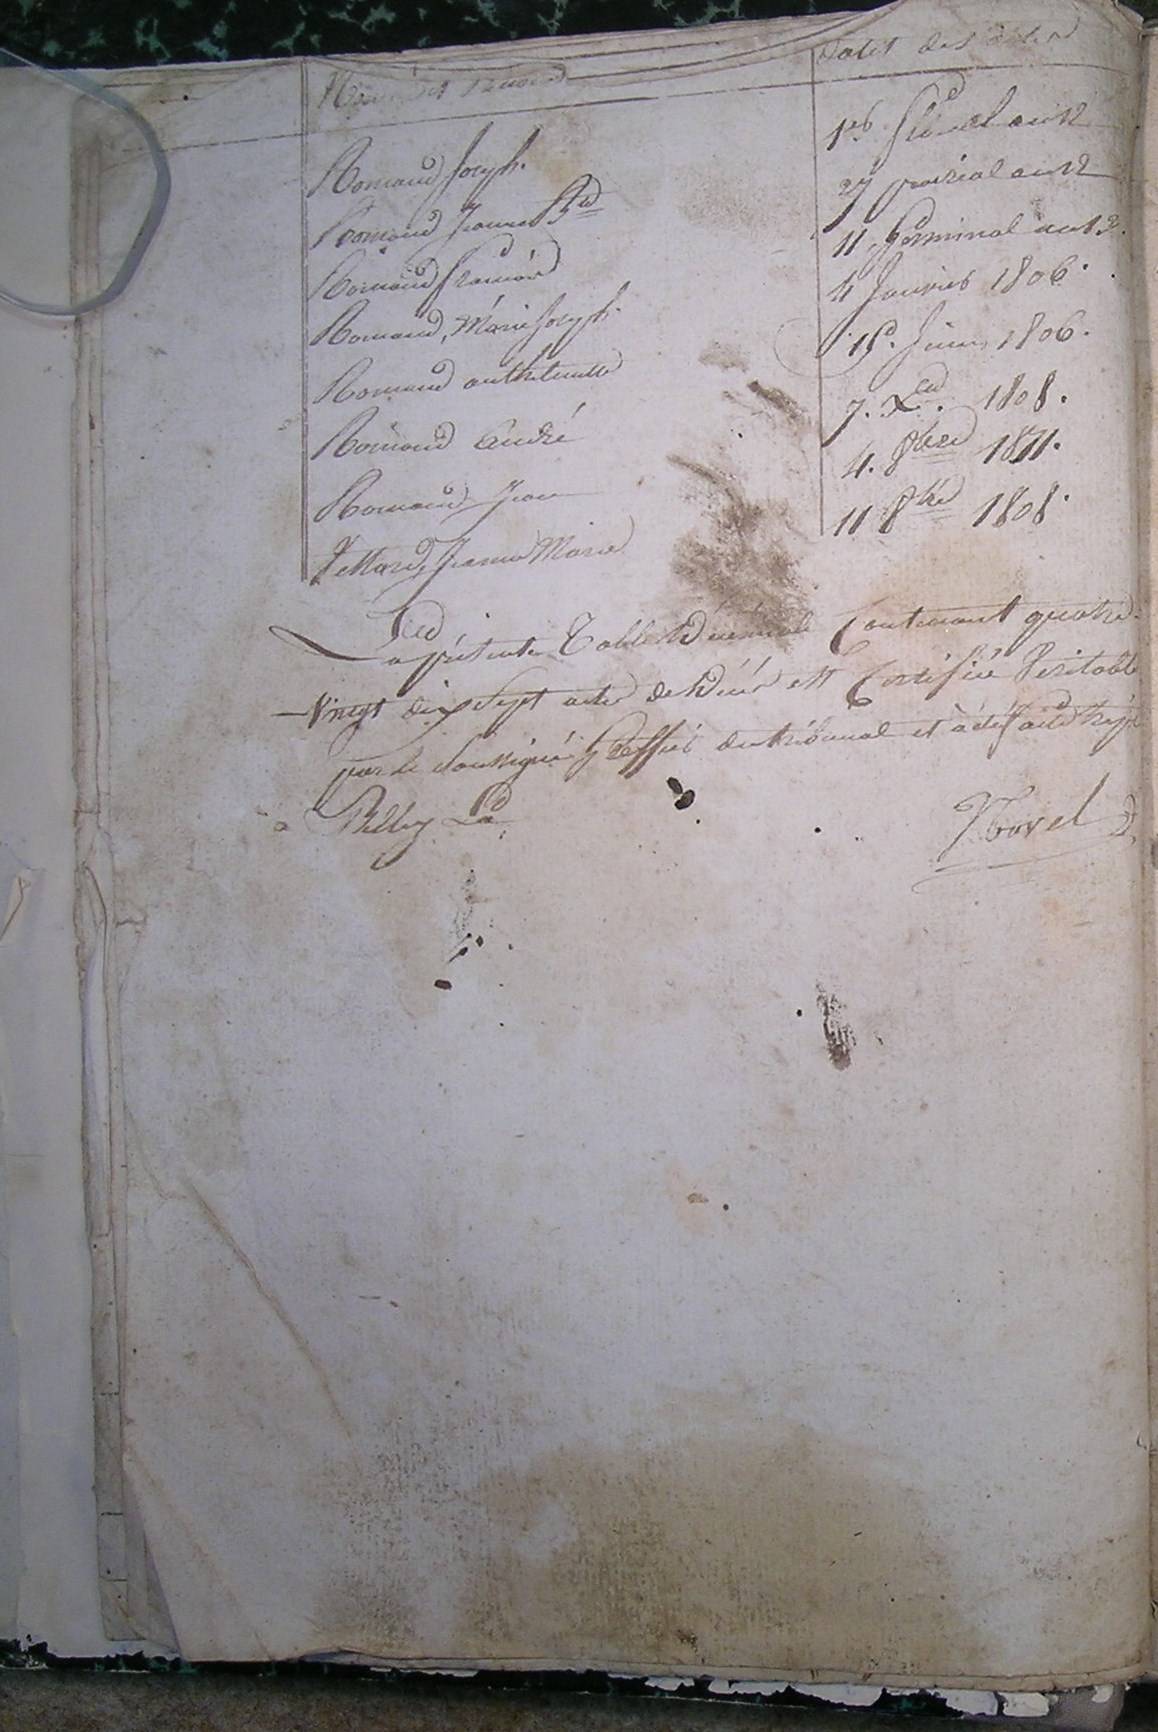 Noms et Prénoms Dates des actes
Romand Joseph. 1er floréal an 12
Romand Jeanne 27 prairial an 12
Romand françois 11 Germinal an 13.
Romand, Marie Joseph. 4 Janvier 1806.
Romand anthelmette 15. Juin 1806.
Romand André 7. Xbre. 1808.
Romand Jean 4. 8bre 1811.
Jeanne Marie 11 8bre 1808.
La présente Table Décénnale Contenant quatre-
Vingt dix Sept actes de Décés est Certifiée Véritable
par le Soussigné Greffier du tribunal
a Belley